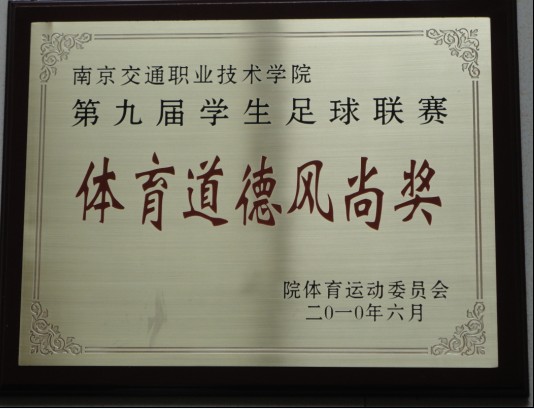 南京交通职业技术学院
第九届学生足球联赛
体育道德风尚奖
院体育运动委员会
二〇一〇年六月